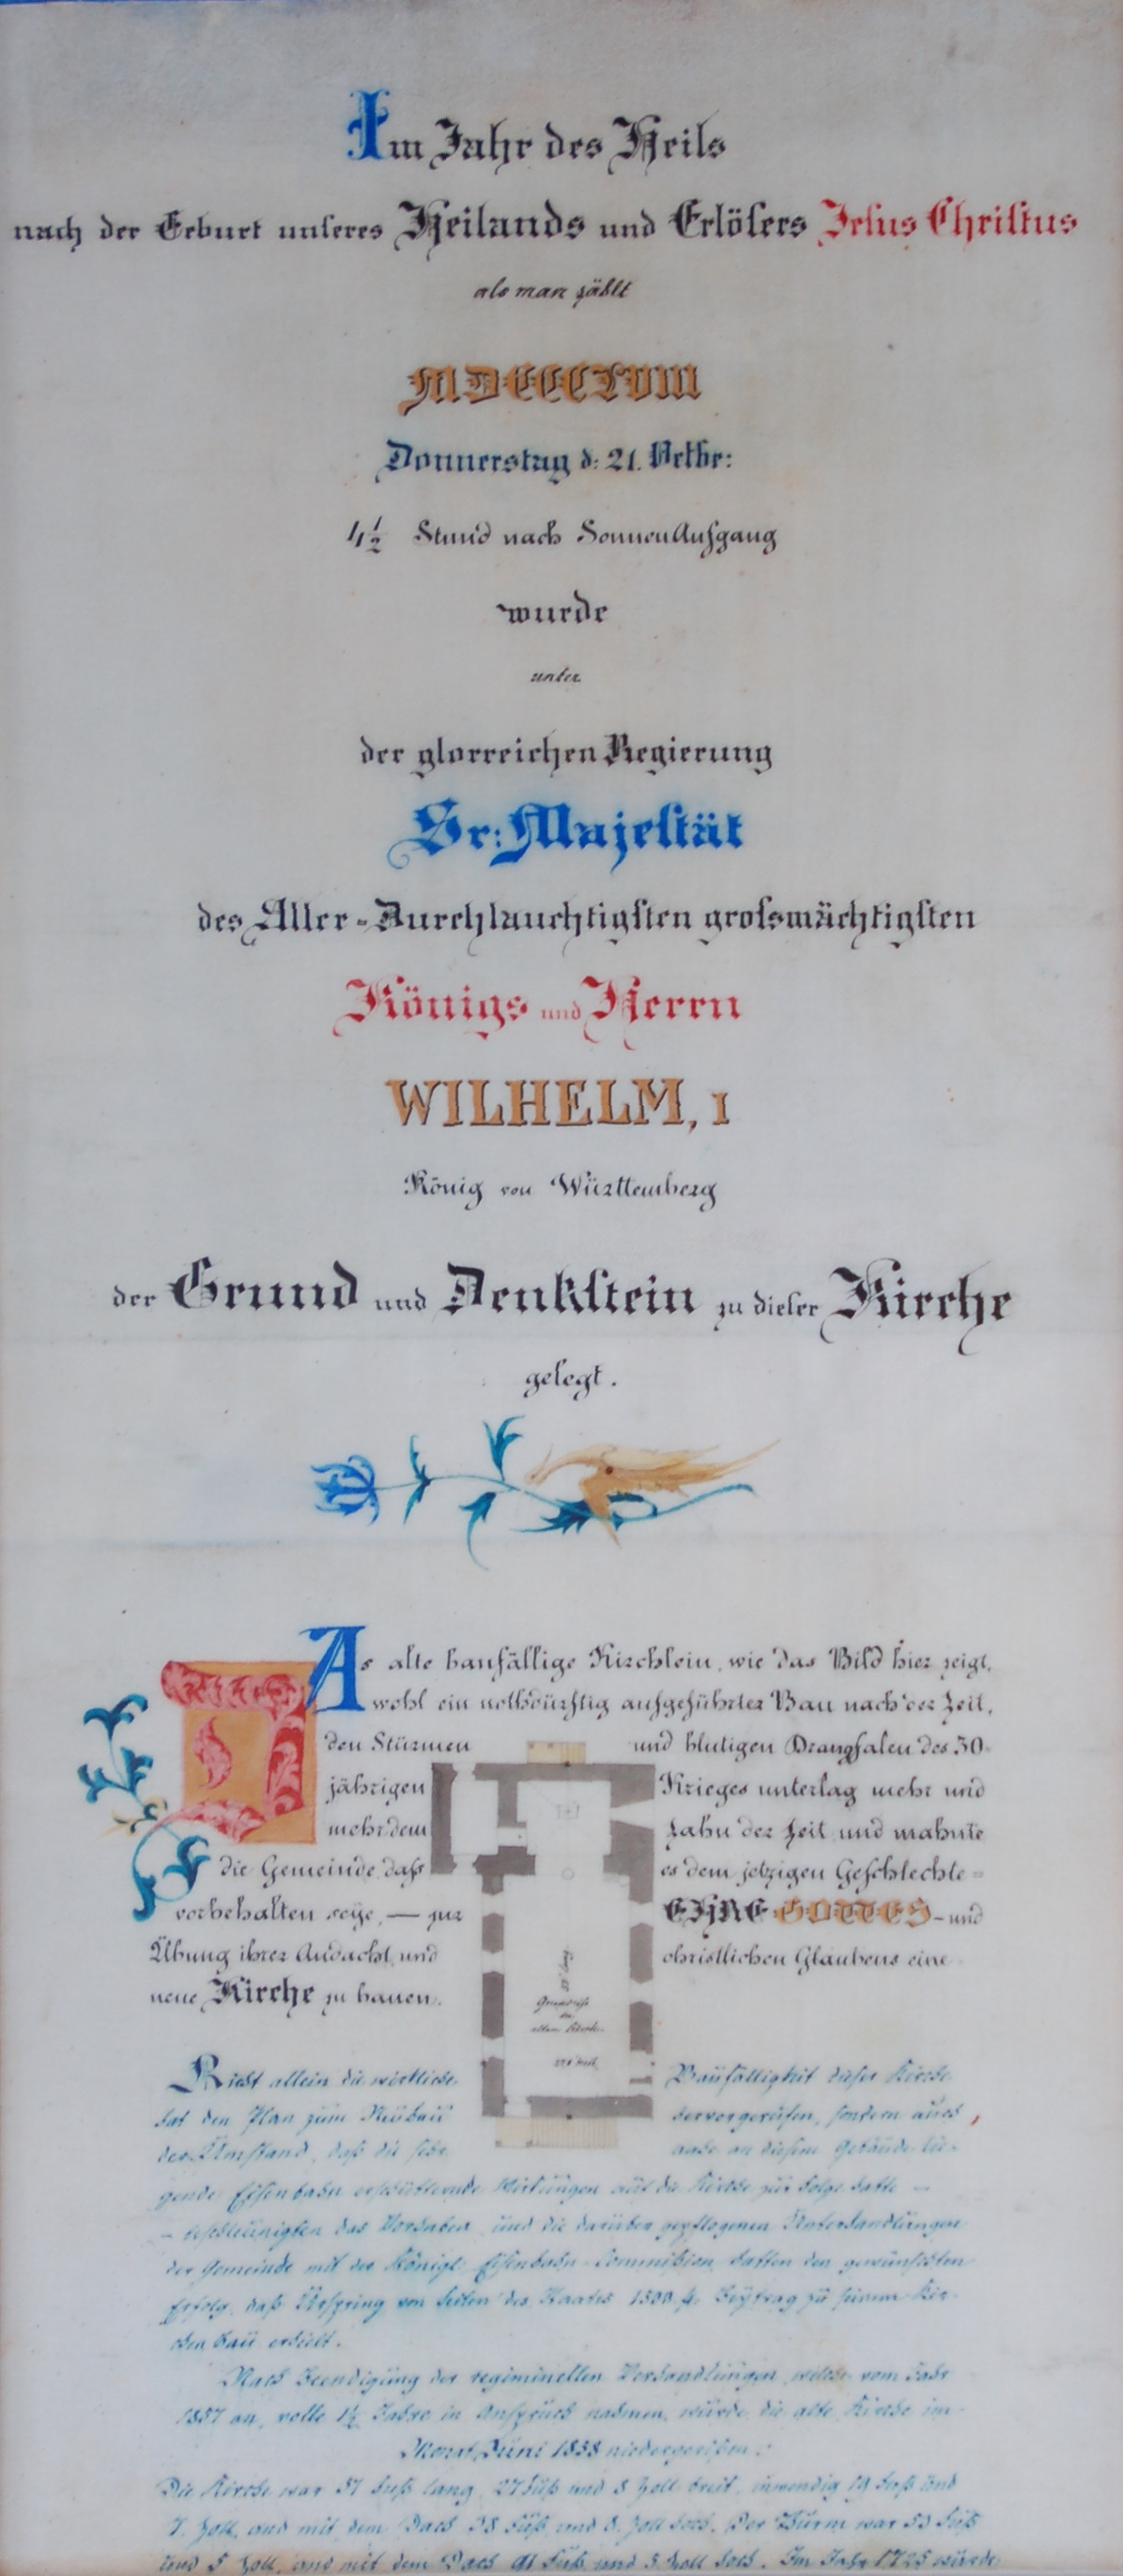 Im Jahr des Heils
nach der Geburt unseres Heilands und Erlösers Jesus Christus
als man zählt
MDCCCLVIII
Donnerstag d: 21. Octbr:
1/2 Stund nach SonnenAufgang
wurde
unter
der glorreichen Regierung
Sr: Majestät
des Aller-Durchlauchtigsten grossmächtigsten
Königs und Herrn
WILHELM, I
König von Württemberg
der Grund und Denkstein zu dieser Kirche
gelegt.
As alte baufällige Kirchlein, wie das Bild hier zeigt,
wohl ein nothdürftig aufgeführter Bau nach der Zeit,
den Stürmen und blutigen Drangsalen des 30
jährigen Krieges unterlag mehr und
mehr dem Zahn der Zeit und mahnte
die Gemeinde, dass es dem jetzigen Geschlechte
vorbehalten seye, — zur EHRE GOTTES - und
Übung ihrer Andacht und christlichen Glaubens eine
neue Kirche zu bauen.
Grundriß
der
alten Kirche
Nicht allein die wirkliche Baufälligkeit dieser Kirche
hat den Plan zum Neubau hervorgerufen, sondern auch
der Umstand, daß die sehr nahe an diesem Gebäude lie-
gende Eisenbahn erschütternde Wirkungen auf die Kirche zur Folge hatte —
— beschleunigten das Vorhaben und die darüber gepflogenen Unterhandlungen
der Gemeinde mit der Königl. Eisenbahn-Commission hatten den gewünschten
Erfolg, daß Urspring von Seiten des Staates 1500 f. Beytrag zu seinem Kir-
chenbau erhielt.
Nach Beendigung der regiminellen Verhandlungen, welche vom Jahr
1857 an, volle 1½ Jahre in Anspruch nahmen, wurde die alte Kirche im
Monat Juni 1858 niedergerißen.
Die Kirche war 57 Fuß lang, 27 Fuß und 8 Zoll breit, inwendig 19 Fuß und
7. Zoll, und mit dem Dach 38 Fuß und 8. Zoll hoch. Der Thurm war 53 Fuß
und 5 Zoll, und mit dem Dach 91 Fuß und 5. Zoll hoch. Im Jahr 1725 wurde